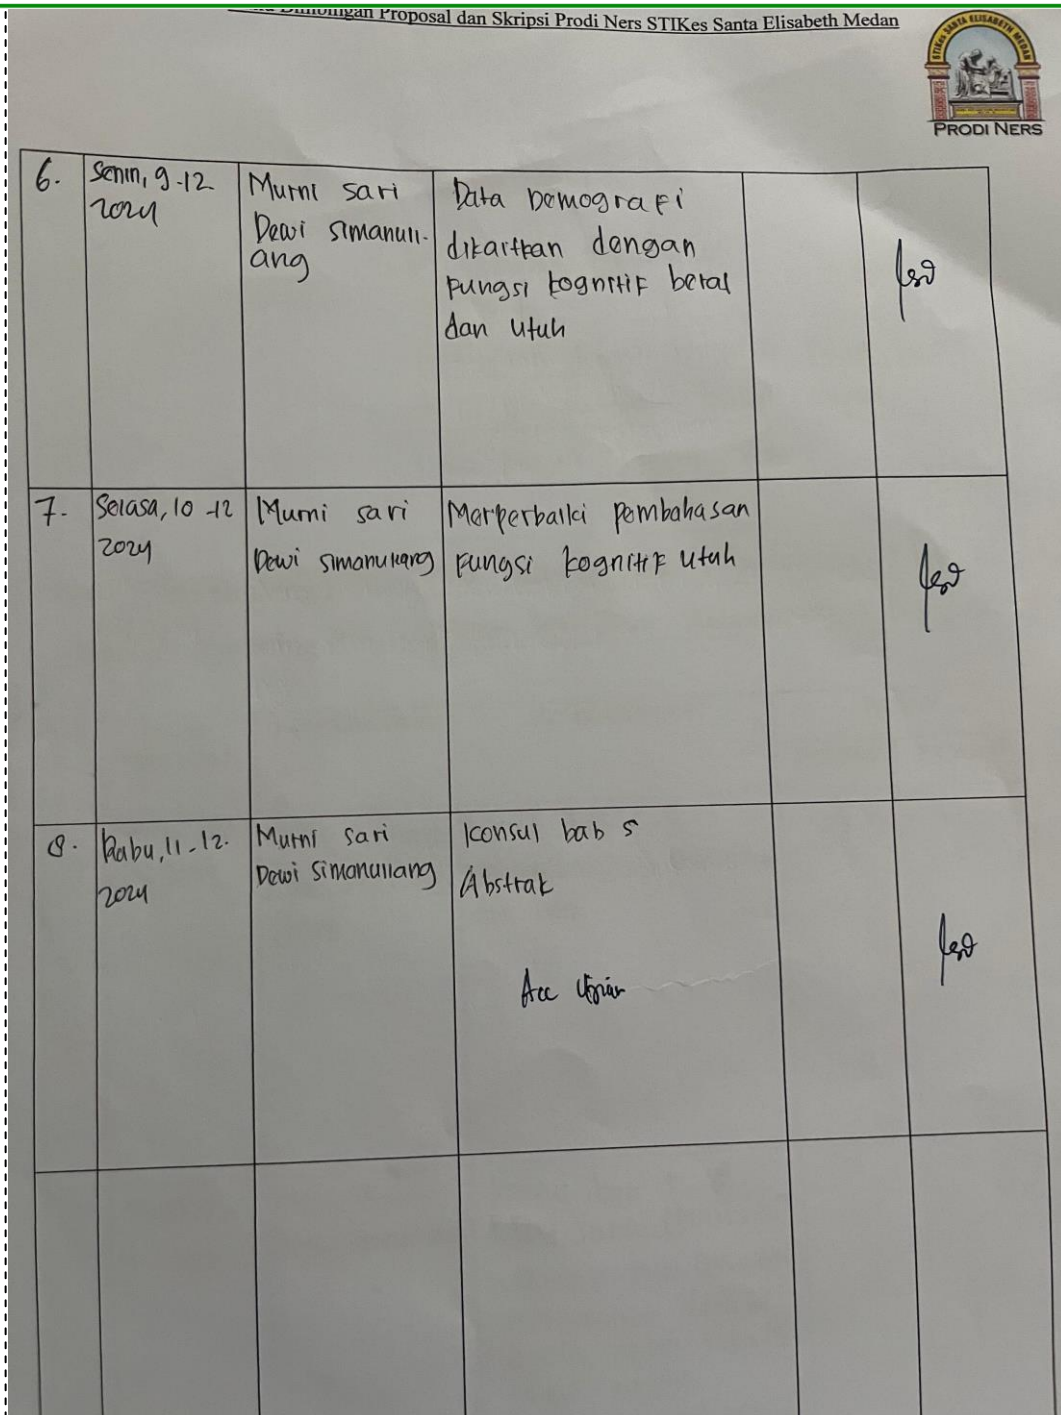 Bimbingan Proposal dan Skripsi Prodi Ners STIKes Santa Elisabeth Medan
STIKes SANTA ELISABETH MEDAN
PRODI NERS
6.
Senin, 9-12
2024
Murni sari
Dewi simanull-
ang
Data Demografi
dikaitkan dengan
fungsi kognitif beral
dan utuh
7.
Selasa, 10-12
2024
Murni sari
Dewi simanullang
Merperbaiki pembahasan
fungsi kognitif utuh
8.
Rabu, 11-12-
2024
Murni sari
Dewi Simanullang
Konsul bab 5
Abstrak
Acc Ujian